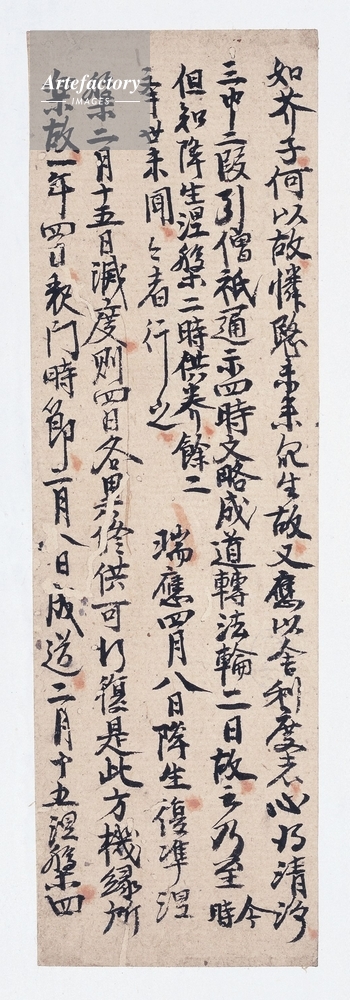 如芥子何以故憐愍未来衆生故又應以舍利度者心得清淨
三中二段引僧祇通示四時文略成道轉法輪二日故云乃至今時
但知降生涅槃二時供養餘二
世未聞者行之
瑞應四月八日降生復準涅
槃二月十五日滅度則四日各修供可行復是此方機緣所
樂故一年四日教門時節二月八日成道二月十五涅槃四
Artefactory
IMAGES